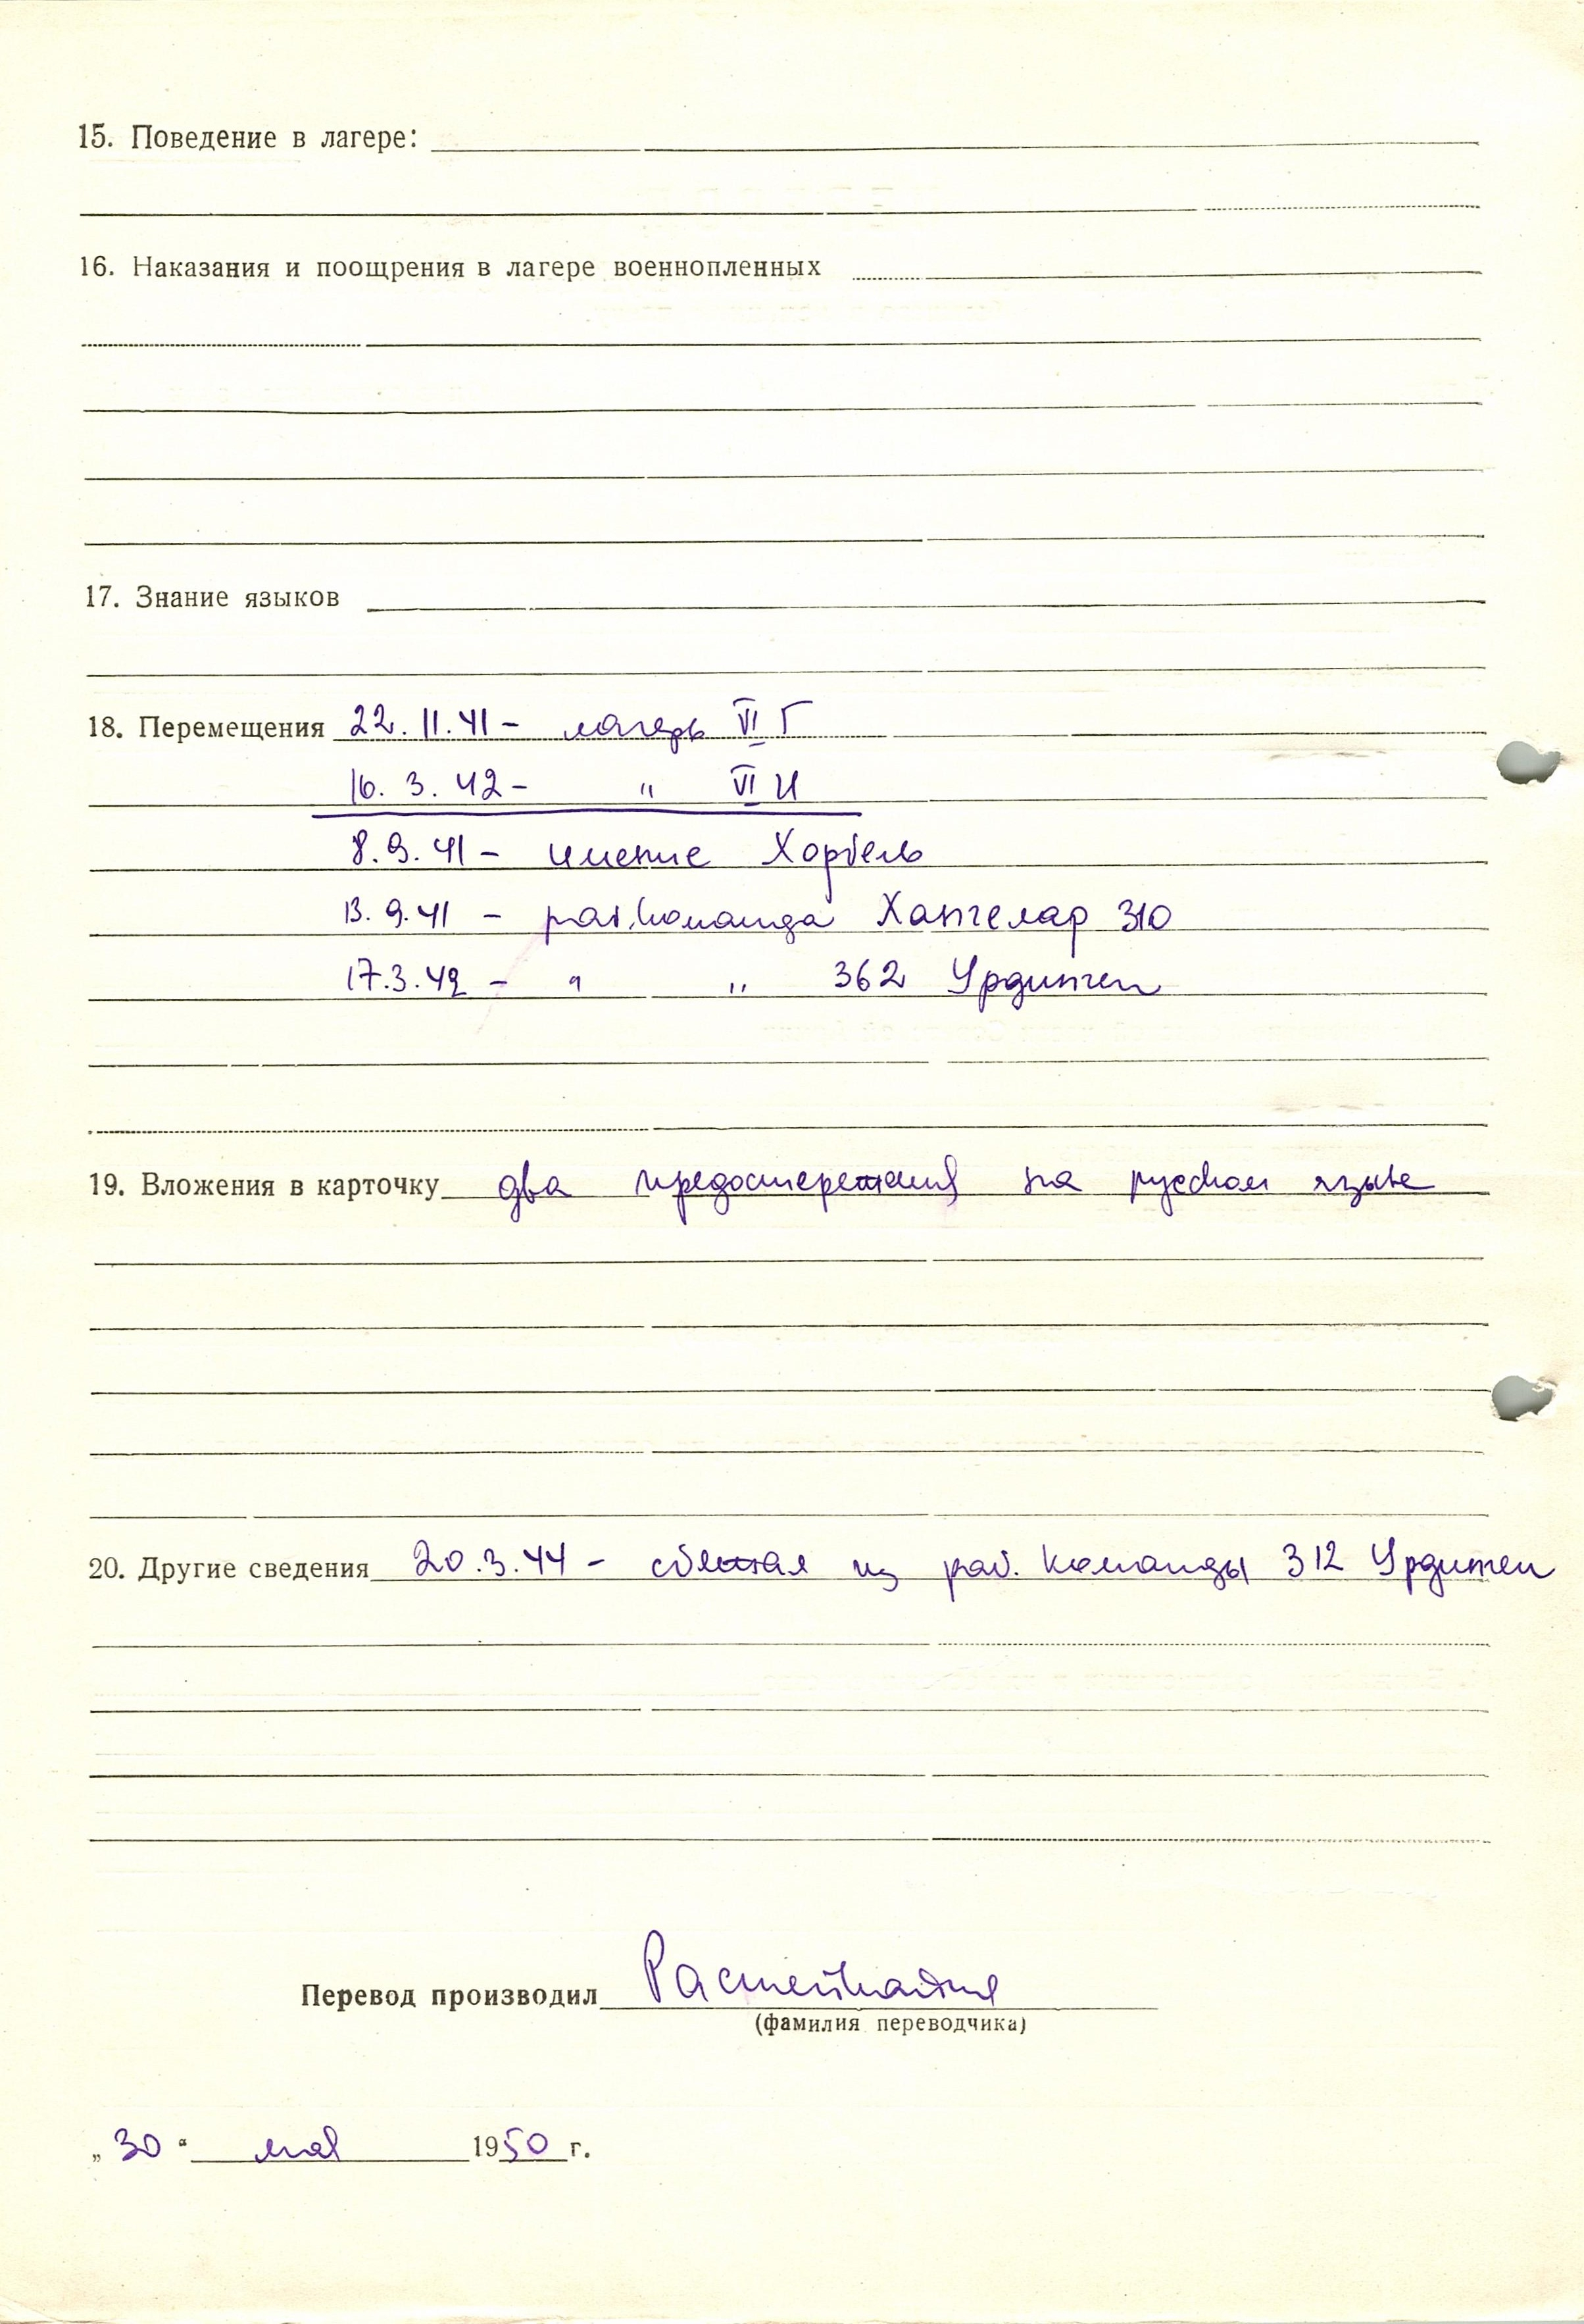 15. Поведение в лагере:
16. Наказания и поощрения в лагере военнопленных
17. Знание языков
18. Перемещения 22.11.41 - лагерь VI Г
16.3.42 - " VI И
8.9.41 - имение Хорбель
13.9.41 - раб.команда Хангелар 310
17.3.42 - " " 362 Урдинген
19. Вложения в карточку два предостережения на русском языке
20. Другие сведения 20.3.44 - сбежал из раб. команды 312 Урдинген
Перевод производил
(фамилия переводчика)
„30“ мая 1950 г.